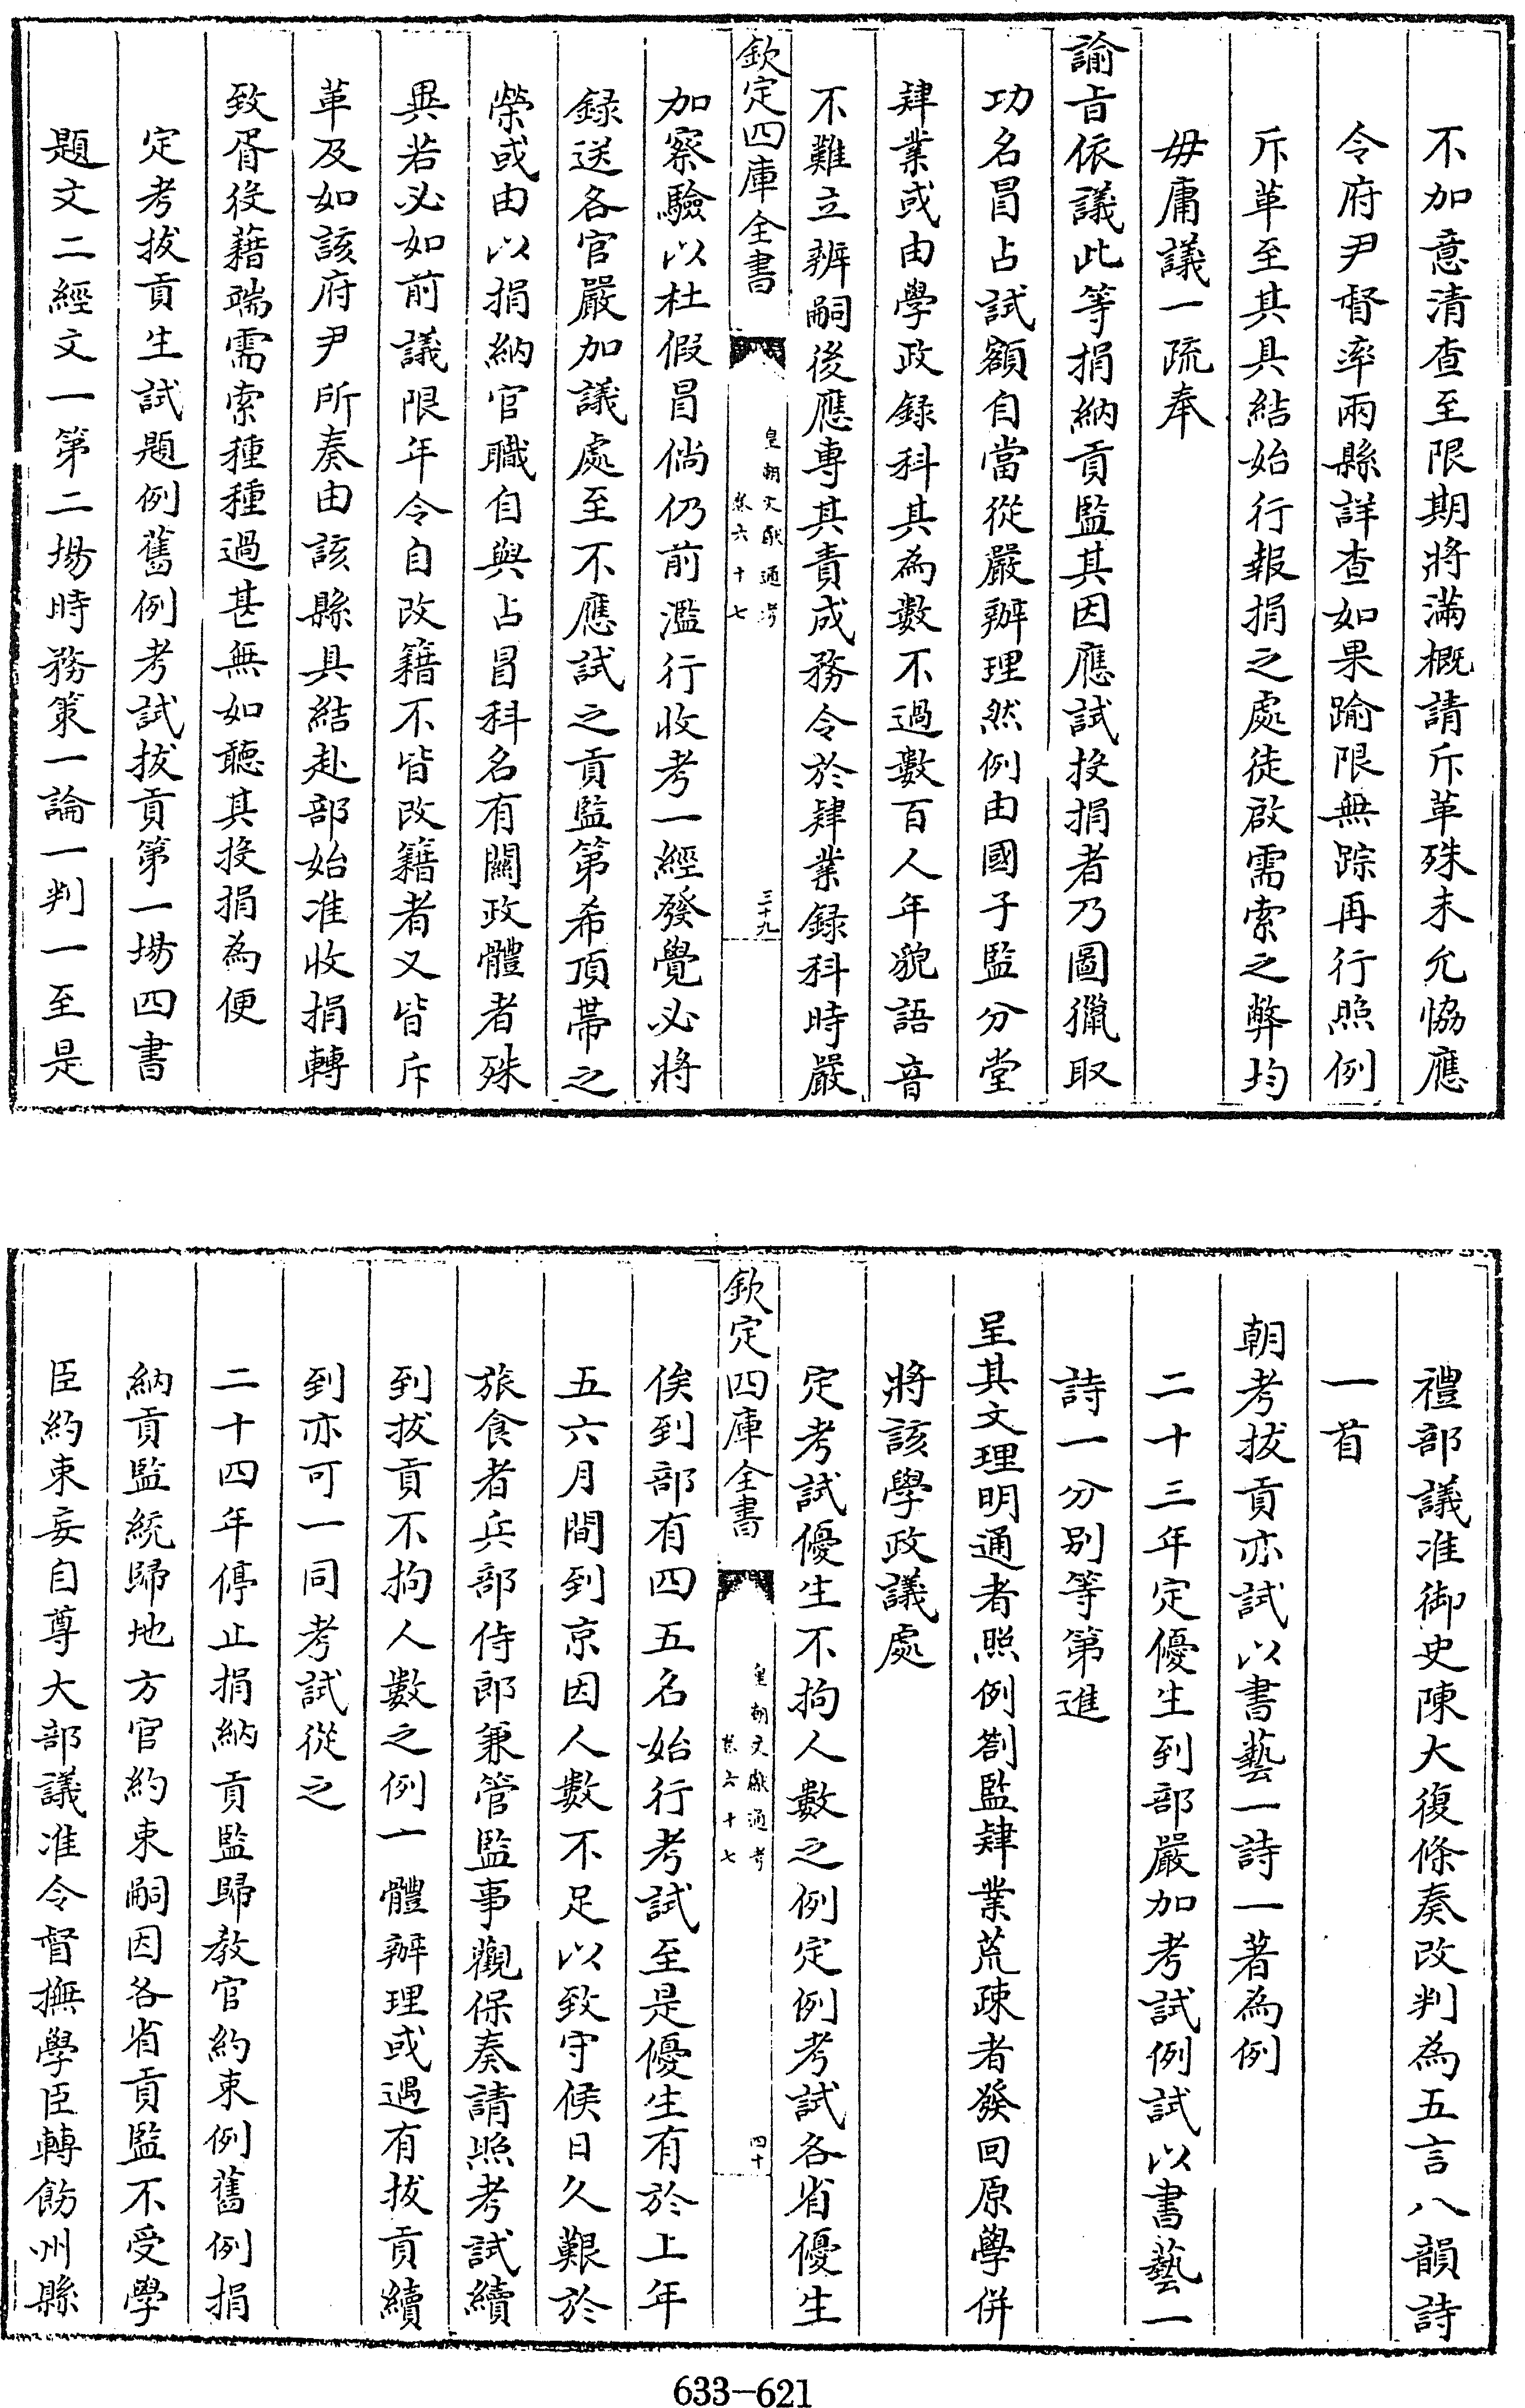 不加意清查至限期將滿概請斥革殊未允恊應
令府尹督率兩縣詳查如果踰限無踪再行照例
斥革至其具結始行報捐之處徒啟需索之弊均
毋庸議一疏奉
諭㫖依議此等捐納貢監其因應試投捐者乃圖獵取
功名冒占試額自當從嚴辦理然例由國子監分堂
肄業或由學政録科其為數不過數百人年貌語音
不難立辨嗣後應專其責成務令於肄業録科時嚴
欽定四庫全書
皇朝文獻通考
卷六十七
三十九
加察驗以杜假冒倘仍前濫行收考一經發覺必將
録送各官嚴加議處至不應試之貢監第希頂帶之
榮或由以捐納官職自與占冒科名有關政體者殊
異若必如前議限年令自改籍不皆改籍者又皆斥
革及如該府尹所奏由該縣具結赴部始准收捐轉
致胥役藉端需索種種過甚無如聽其投捐為便
定考拔貢生試題例舊例考試拔貢第一場四書
題文二經文一第二場時務策一論一判一至是
禮部議准御史陳大復條奏改判為五言八韻詩
一首
朝考拔貢亦試以書藝一詩一著為例
二十三年定優生到部嚴加考試例試以書藝一
詩一分别等第進
呈其文理明通者照例劄監肄業荒疎者發回原學併
將該學政議處
定考試優生不拘人數之例定例考試各省優生
欽定四庫全書
皇朝文獻通考
卷六十七
四十
俟到部有四五名始行考試至是優生有於上年
五六月間到京因人數不足以致守候日久艱於
旅食者兵部侍郎兼管監事觀保奏請照考試續
到拔貢不拘人數之例一體辦理或遇有拔貢續
到亦可一同考試從之
二十四年停止捐納貢監歸教官約束例舊例捐
納貢監統歸地方官約束嗣因各省貢監不受學
臣約束妄自尊大部議准令督撫學臣轉飭州縣
633-621